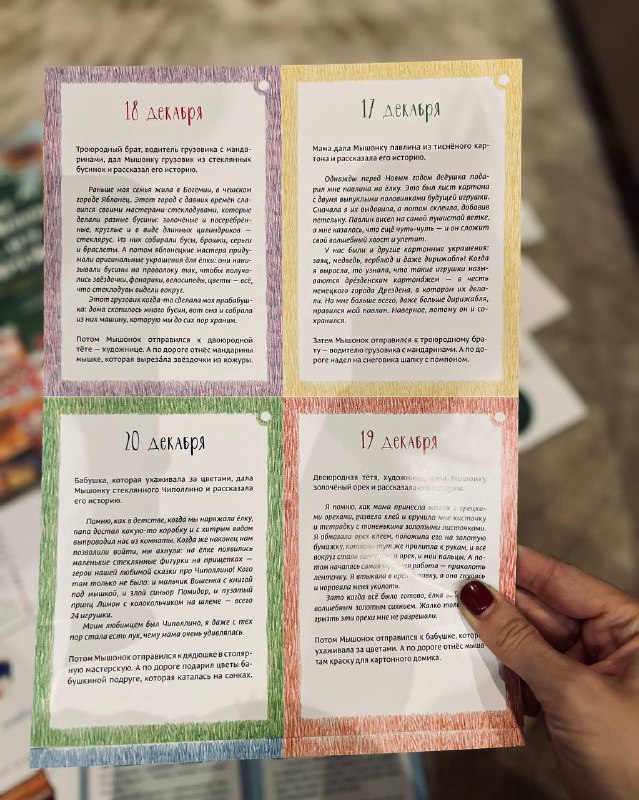 18 декабря
Троюродный брат, водитель грузовика с манда-
ринами, дал Мышонку грузовик из стеклянных
бусинок и рассказал его историю.
Раньше моя семья жила в Богемии, в чешском
городе Яблонец. Этот город с давних времён сла-
вился своими мастерами-стеклодувами, которые
делали разные бусины: золочёные и посеребрён-
ные, круглые и в виде длинных цилиндриков —
стеклярус. Из них собирали бусы, брошки, серьги
и браслеты. А потом яблонецкие мастера приду-
мали оригинальные украшения для ёлки: они нани-
зывали бусины на проволоку так, чтобы получа-
лись звёздочки, фонарики, велосипеды, цветы — всё,
что стеклодувы видели вокруг.
Этот грузовик когда-то сделала моя прабабуш-
ка: дома скопилось много бусин, вот она и собрала
из них машину, которую мы до сих пор храним.
Потом Мышонок отправился к двоюродной
тёте — художнице. А по дороге отнёс мандарины
мышке, которая вырезáла звёздочки из кожуры.
17 декабря
Мама дала Мышонку павлина из тиснёного кар-
тона и рассказала его историю.
Однажды перед Новым годом дедушка пода-
рил мне павлина на ёлку. Это был лист картона
с двумя выпуклыми половинками будущей игрушки.
Сначала я их выдавила, а потом склеила, добавив
петельку. Павлин висел на самой пушистой ветке,
а мне казалось, что ещё чуть-чуть — и он сложит
свой волшебный хвост и улетит.
У нас были и другие картонные украшения:
заяц, медведь, верблюд и даже дирижабль! Когда
я выросла, то узнала, что такие игрушки назы-
ваются дрéзденским картонáжем — в честь
немецкого города Дрездена, в котором их дела-
ли. Но мне больше всего, даже больше дирижабля,
нравился мой павлин. Наверное, потому он и со-
хранился.
Затем Мышонок отправился к троюродному бра-
ту — водителю грузовика с мандаринами. А по до-
роге надел на снеговика шапку с помпоном.
20 декабря
Бабушка, которая ухаживала за цветами, дала
Мышонку стеклянного Чиполлино и рассказала
его историю.
Помню, как в детстве, когда мы наряжали ёлку,
папа достал какую-то коробку и с хитрым видом
выпроводил нас из комнаты. Когда же наконец нам
позволили войти, мы ахнули: на ёлке появились
маленькие стеклянные фигурки на прищепках —
герои нашей любимой сказки про Чиполлино! Кого
там только не было: и мальчик Вишенка с книгой
под мышкой, и злой синьор Помидор, и пузатый
принц Лимон с колокольчиком на шлеме — всего
24 игрушки.
Моим любимцем был Чиполлино, я даже с тех
пор стала есть лук, чему мама очень удивлялась.
Потом Мышонок отправился к дядюшке в столяр-
ную мастерскую. А по дороге подарил цветы ба-
бушкиной подруге, которая каталась на санках.
19 декабря
Двоюродная тётя, художница, дала Мышонку
золочёный орех и рассказала его историю.
Я помню, как мама принесла мешок с грецки-
ми орехами, развела клей и вручила мне кисточку
и тетрадку с тоненькими золотыми листочками.
Я обмазала орех клеем, положила его на золотую
бумажку, которая тут же прилипла к рукам, и всё
вокруг стало золотым: и орех, и мои пальцы. А по-
том началась самая работа — приколоть
ленточку. Я втыкала в орех булавку, а она гнулась
и норовила меня уколоть.
Зато когда всё было готово, ёлка
волшебным золотым сиянием. Жалко только,
грызть эти орехи мне не разрешали.
Потом Мышонок отправился к бабушке, которая
ухаживала за цветами. А по дороге отнёс мыша-
там краску для картонного домика.